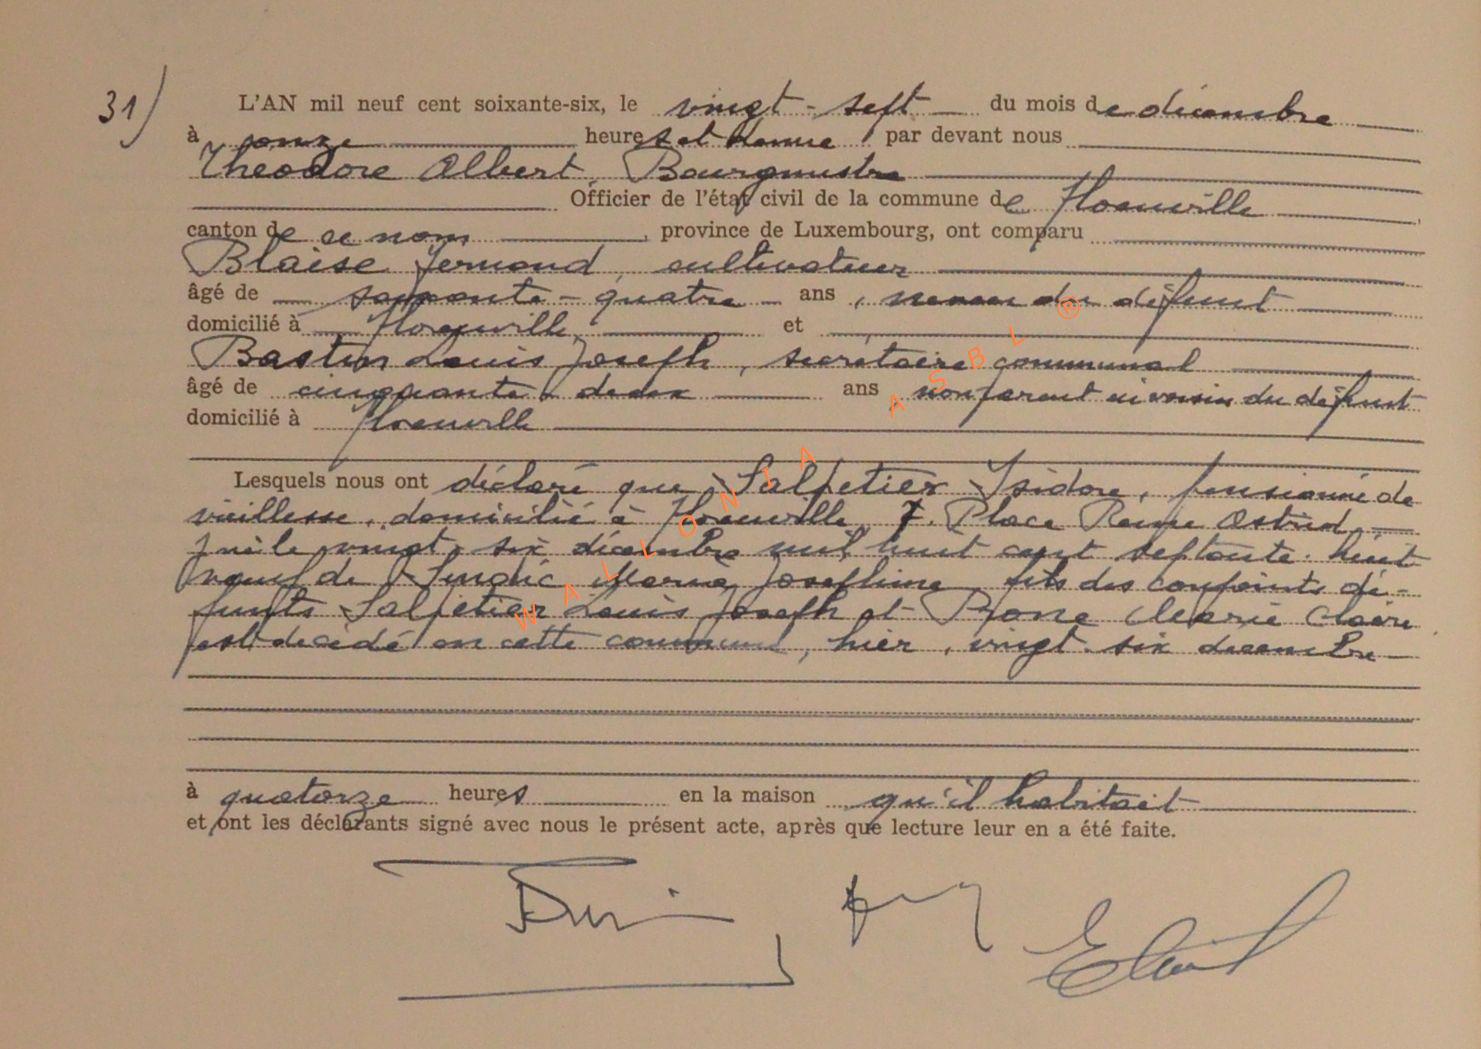 31)
L'AN mil neuf cent soixante-six, le vingt-sept du mois de décembre
à onze heures et demie par devant nous
Théodore Albert, Bourgmestre
Officier de l'état civil de la commune de Florenville
canton de ce nom, province de Luxembourg, ont comparu
Blaise Fernand, cultivateur
âgé de soixante-quatre ans, neveu du défunt
domicilié à Florenville et
Bastin Louis Joseph, secrétaire communal
âgé de cinquante deux ans non parent ni voisin du défunt
domicilié à Florenville
Lesquels nous ont déclaré que Salpetier Isidore, pensionné de
vieillesse, domicilié à Florenville, 7. Place Reine Astrid,
né le vingt-six décembre mil huit cent septante-huit
veuf de Marie Josephine, fils des conjoints dé-
funts Salpetier Louis Joseph et Marie Claire
est décédé en cette commune, hier, vingt-six décembre
à quatorze heures en la maison qu'il habitait
et ont les déclarants signé avec nous le présent acte, après que lecture leur en a été faite.
WALLONIA ASBL ®